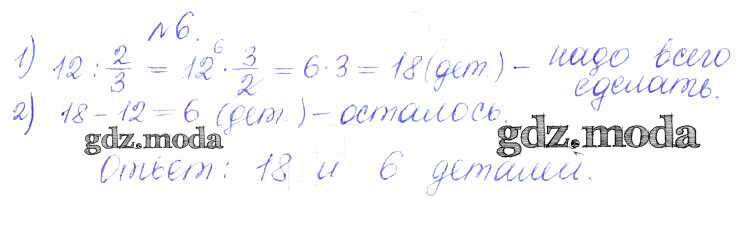 №6.
1) 12 : 2/3 = 12⁶ · 3/2 = 6·3 = 18 (дет.) – надо всего сделать.
2) 18 – 12 = 6 (дет.) – осталось.
gdz.moda gdz.moda
Ответ: 18 и 6 деталей.